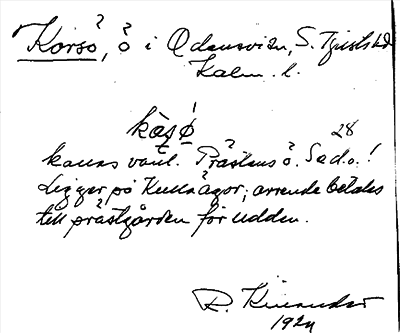 Korsö, ö i Odensviken, S. Tjusts hd
Kalm. l.
28
kallas vanl. Prästens ö. Se d.o.!
Ligger på Kullsägor; arrende betalas
till prästgården för udden.
R.
1924